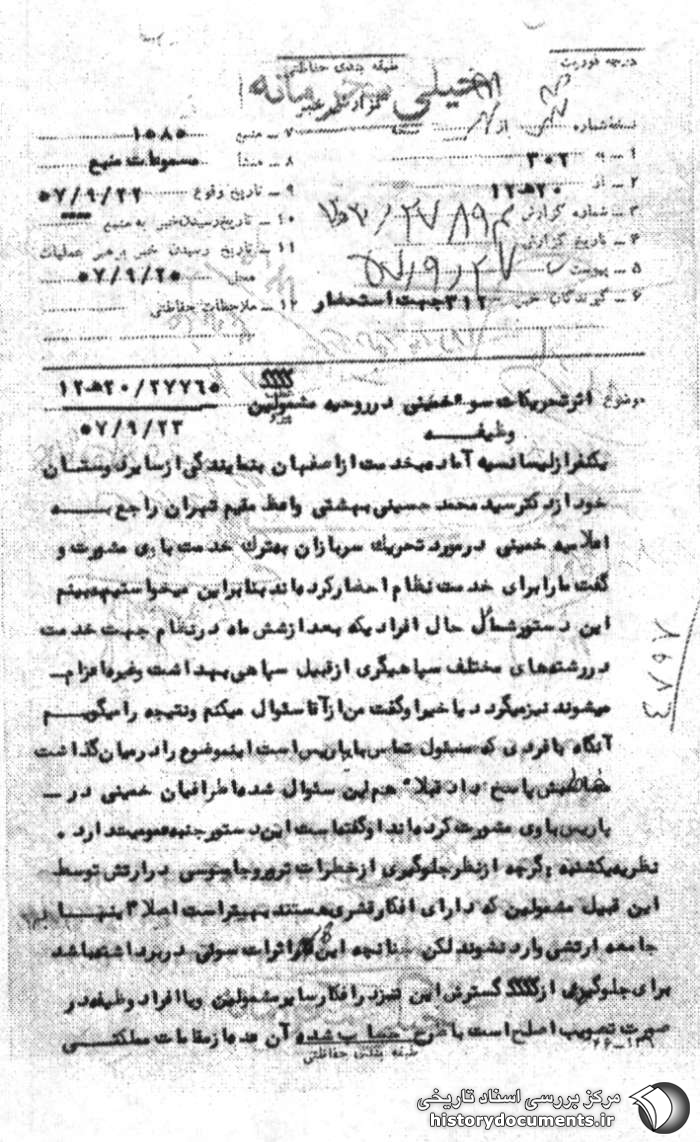 درجه فوریت
طبقه بندی حفاظتی
خیلی محرمانه
گزارش خبر
نسخه شماره از نسخه
۱ ــ به ۳۰۲
۲ ــ از ۲۰هـ۱۲
۳ ــ شماره گزارش
۴ ــ تاریخ گزارش ۵۷/۹/۲۷
۵ ــ پیوست
۶ ــ گیرندگان خبر ۳۱۲ جهت استحضار
۷ ــ منبع ۱۵۸۵
۸ ــ منشأ مسموعات منبع
۹ ــ تاریخ وقوع ۵۷/۹/۲۲
۱۰ ــ تاریخ رسیدن خبر به منبع
۱۱ ــ تاریخ رسیدن خبر به رهبر عملیات
محل ۵۷/۹/۲۵
۱۲ ــ ملاحظات حفاظتی
۲۰/۲۷۷۶۵هـ۱۲
۵۷/۹/۲۳
موضوع اثر تحریکات سوء خمینی در روحیه مشمولین
وظیفه
یکنفر از لیسانسیه آماده بخدمت از اصفهان بنمایندگی از سایر دوستان
خود از دکتر سید محمد حسینی بهشتی واعظ مقیم تهران راجع به
اعلامیه خمینی در مورد تحریک سربازان بترک خدمت با وی مشورت و
گفت ما را برای خدمت نظام احضار کرده‌اند بنابراین میخواستیم ببینم
این دستور شامل حال افرادیکه بعد از شش ماه در نظام جهت خدمت
در رشته‌های مختلف سپاهیگری از قبیل سپاهی بهداشت وغیره اعزام ــ
میشوند نیز میگردد یا خیر او گفت من از آقا سئوال میکنم و نتیجه را میگویم
آنگاه با فردی که مسئول تماس با پاریس است اینموضوع را در میان گذاشت
مخاطبش پاسخ داد قبلا" هم این سئوال شده اطرافیان خمینی در ــ
پاریس با وی مشورت کرده‌اند او گفته است این دستور جنبه عمومیت دارد .
نظریه یکشنبه : گرچه از نظر جلوگیری از خطرات ترور و جاسوسی در ارتش توسط
این قبیل مشمولین که دارای افکار قشری هستند بهتر است اصلا" اینها
جامعه ارتشی وارد نشوند لکن چنانچه این اثرات سوئی در برداشته باشد
برای جلوگیری از گسترش این تز در افکار سایر مشمولین و یا افراد وظیفه در
صورت تصویب اصلح است با شرح آن عده از مقامات مملکتی
طبقه بندی حفاظتی
۴۷۹۷
مرکز بررسی اسناد تاریخی
historydocuments.ir